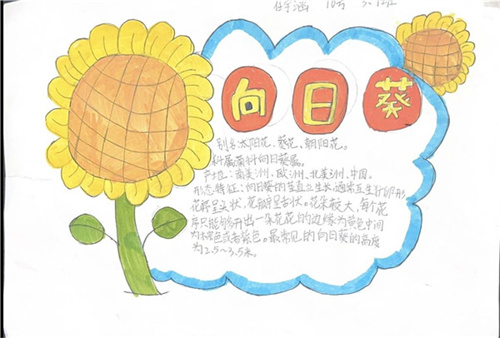 10号
向日葵
别名:太阳花、葵花、朝阳花。
科属:菊科向日葵属。
产地:南美洲、欧洲、北美洲、中国。
形态特征:向日葵的茎直立生长,通常互生行卵形,
花瓣呈头状,花瓣呈舌状。花朵较大,每个花
序只能够开出一朵花花的边缘为黄色中间
为棕色或者紫色。最常见的向日葵的高度
为2.5~3.5米。